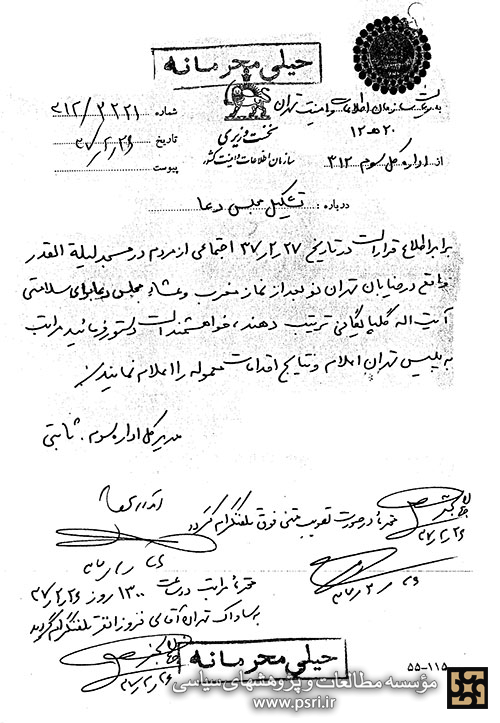 خیلی محرمانه
به: ریاست سازمان اطلاعات و امنیت تهران
۲۰ ه ۱۲
از: اداره کل سوم ۳۱۲
نخست وزیری
سازمان اطلاعات و امنیت کشور
شماره ۳۱۲/۳۲۲۱
تاریخ ۳۷/۲/۲۶
پیوست
درباره: تشکیل مجلس دعا
برابر اطلاع قرار است در تاریخ ۳۷/۲/۲۷ اجتماعی از مردم در مسجد لیلة القدر
واقع در خیابان تهران نو بعد از نماز مغرب و عشاء مجلس دعا برای سلامتی
آیت اله گلپایگانی ترتیب دهند، خواهشمند است دستور فرمائید مراتب
به پلیس تهران اعلام و نتایج اقدامات معموله را اعلام نمایند.
مدیر کل اداره سوم. ثابتی
محترماً در صورت تصویب متن فوق تلفنگرام گردد
۳۷/۲/۲۶
محترماً مراتب در ساعت ۱۳۰۰ روز ۳۷/۲/۲۶
به ساواک تهران آقای فروزانفر تلفنگرام گردید
۳۷/۲/۲۶
خیلی محرمانه
۵۵-۱۱۵
مؤسسه مطالعات و پژوهشهای سیاسی
www.psri.ir